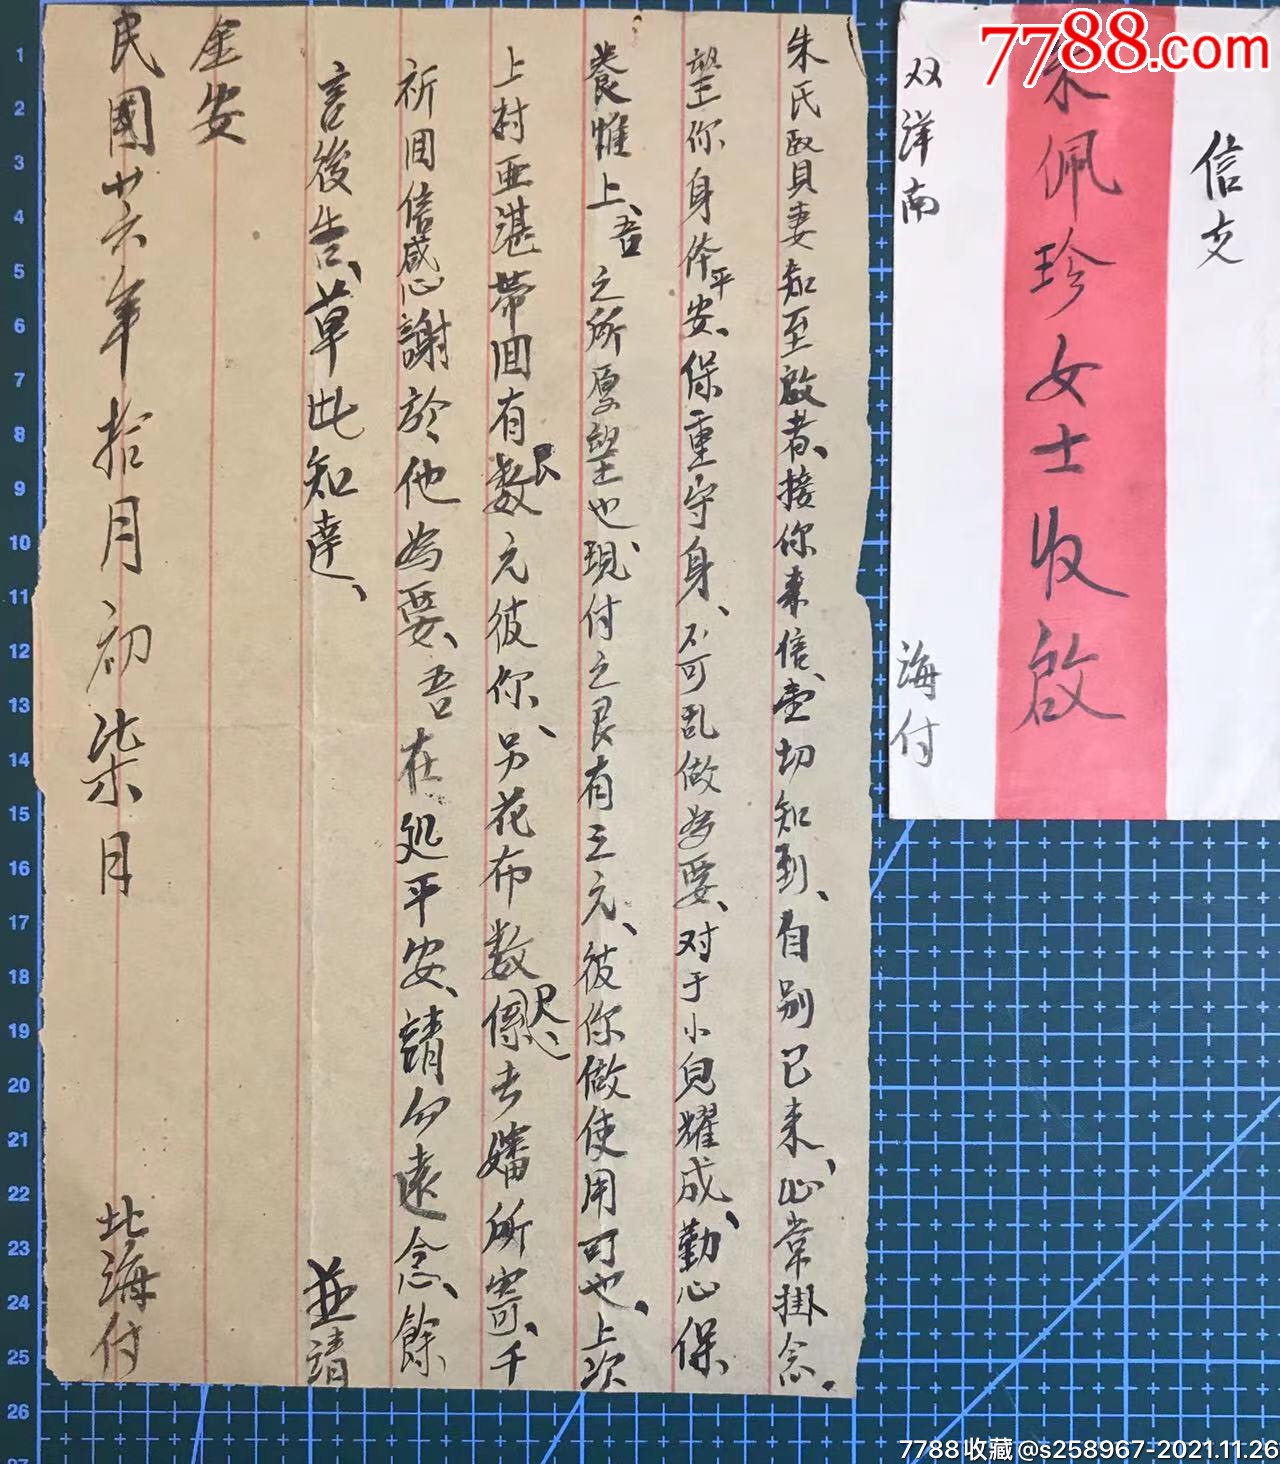 朱氏賢妻知至啟者、接你来信、壹切知到、自别已来、心常掛念.
望你身体平安、保重守身、不可乱做為要、对于小兒耀成、勤心保
養惟上、吾之所厚望也、現付之艮有三元、彼你做使用可也、上次
上村亜湛帶囬有艮数元彼你、另花布数尺、係去嬸所寄、千
祈囬信感謝於他為要、吾在処平安、請勿遠念、餘
言後告、草此知達、 並請
金安
民國廿六年拾月初柒月 北海付
信交
朱佩珍女士收啟
双洋南 海付
7788.com
7788收藏@s258967-2021.11.26
1
2
3
4
5
6
7
8
9
10
11
12
13
14
15
16
17
18
19
20
21
22
23
24
25
26